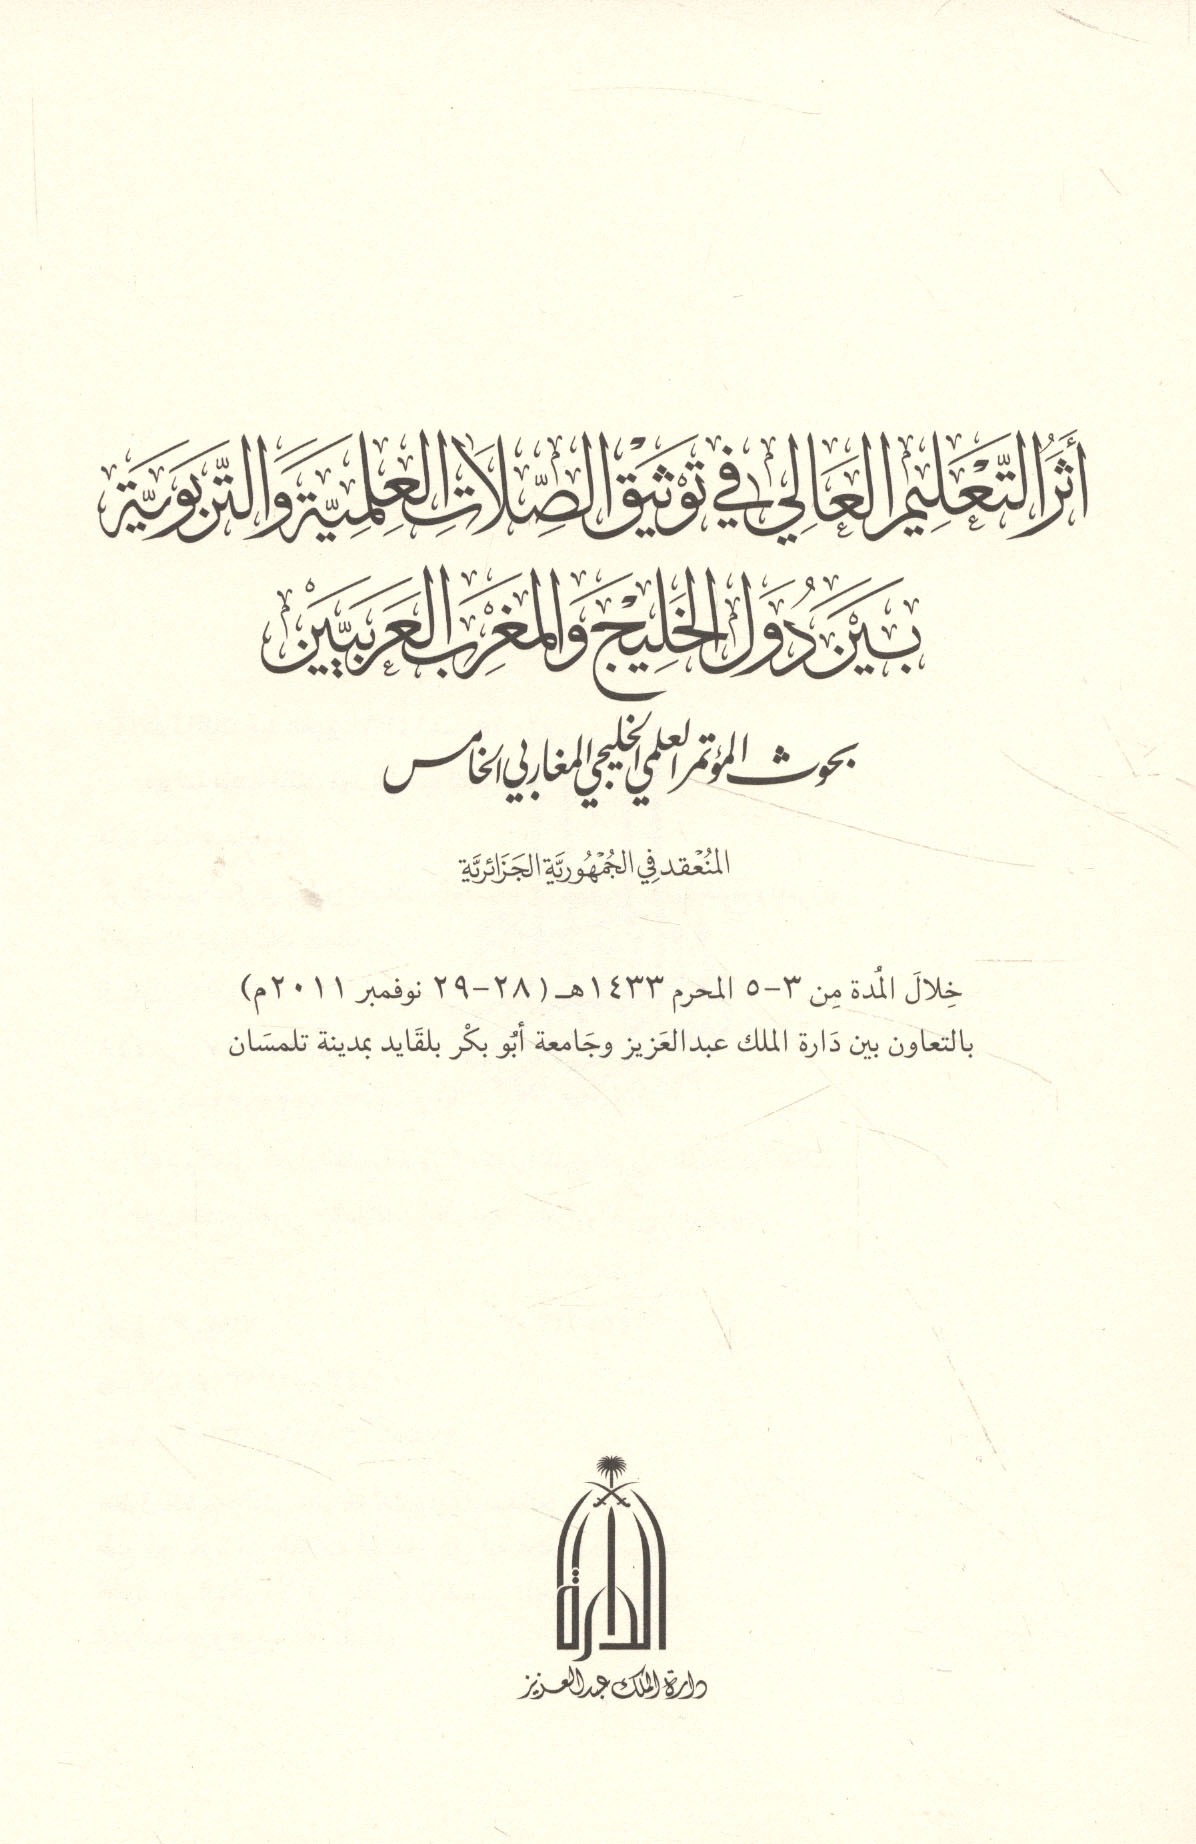 أَثَرُ التَّعْلِيمِ العَالِي فِي تَوْثِيْقِ الصِّلَاتِ العِلْمِيَّةِ وَالتَّرْبَوِيَّةِ
بَيْنَ دُوَلِ الخَلِيْجِ وَالمَغْرِبِ العَرَبِيَّيْنِ
بحوث المؤتمر العلمي الخليجي المغاربي الخامس
المنُعْقد فِي الجُمْهُوريَّة الجَزَائريَّة
خِلالَ المُدة مِن ٣-٥ المحرم ١٤٣٣هـ (٢٨-٢٩ نوفمبر ٢٠١١م)
بالتعاون بين دَارة الملك عبدالعَزيز وجَامعة أبُو بكْر بلقَايد بمدينة تلمسَان
الدارة
دارة الملك عبدالعزيز